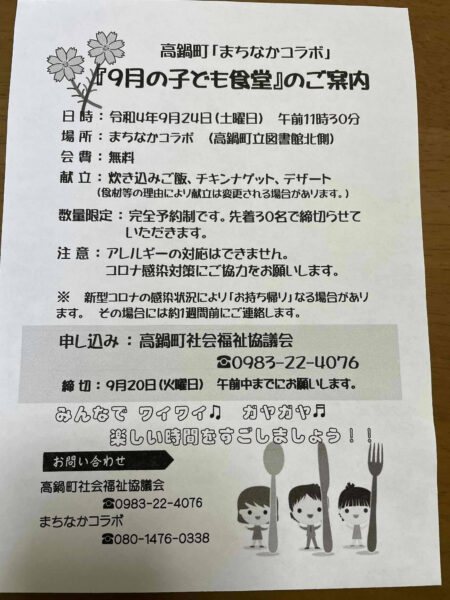 高鍋町「まちなかコラボ」
『9月の子ども食堂』のご案内
日 時：令和4年9月24日(土曜日)　午前11時30分
場 所：まちなかコラボ　(高鍋町立図書館北側)
会 費：無料
献 立：炊き込みご飯、チキンナゲット、デザート
(食材等の理由により献立は変更される場合があります。)
数量限定：完全予約制です。先着30名で締切らせて
いただきます。
注 意：アレルギーの対応はできません。
コロナ感染対策にご協力をお願いします。
※　新型コロナの感染状況により「お持ち帰り」なる場合があり
ます。　その場合には約1週間前にご連絡します。
申し込み：高鍋町社会福祉協議会
☎0983-22-4076
締 切：9月20日(火曜日)　午前中までにお願いします。
みんなで ワイワイ♫　ガヤガヤ♬
楽しい時間をすごしましょう！！
お問い合わせ
高鍋町社会福祉協議会
☎0983-22-4076
まちなかコラボ
☎080-1476-0338